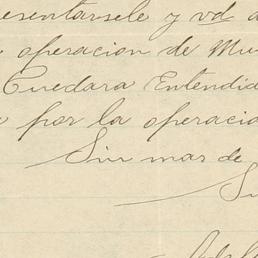 esentarsele y vd a
operacion de Mu
Cuedara Entendid
por la operacio
Sin mas de
Su